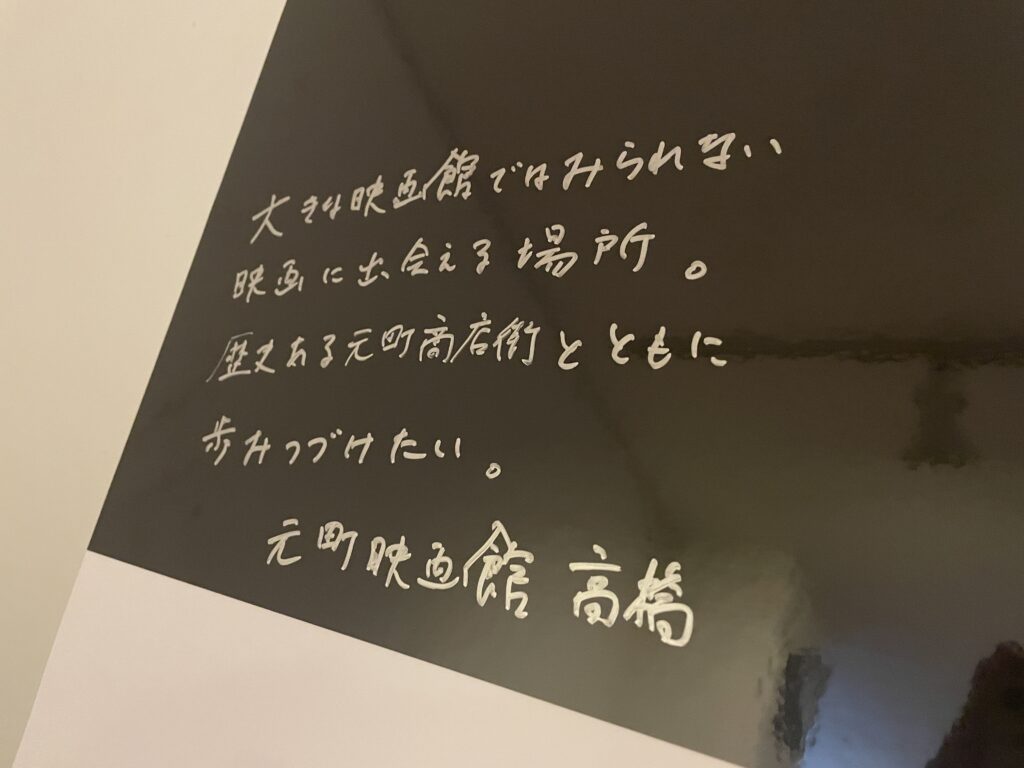 大きな映画館ではみられない
映画に出会える場所。
歴史ある元町商店街とともに
歩みつづけたい。
元町映画館 高橋